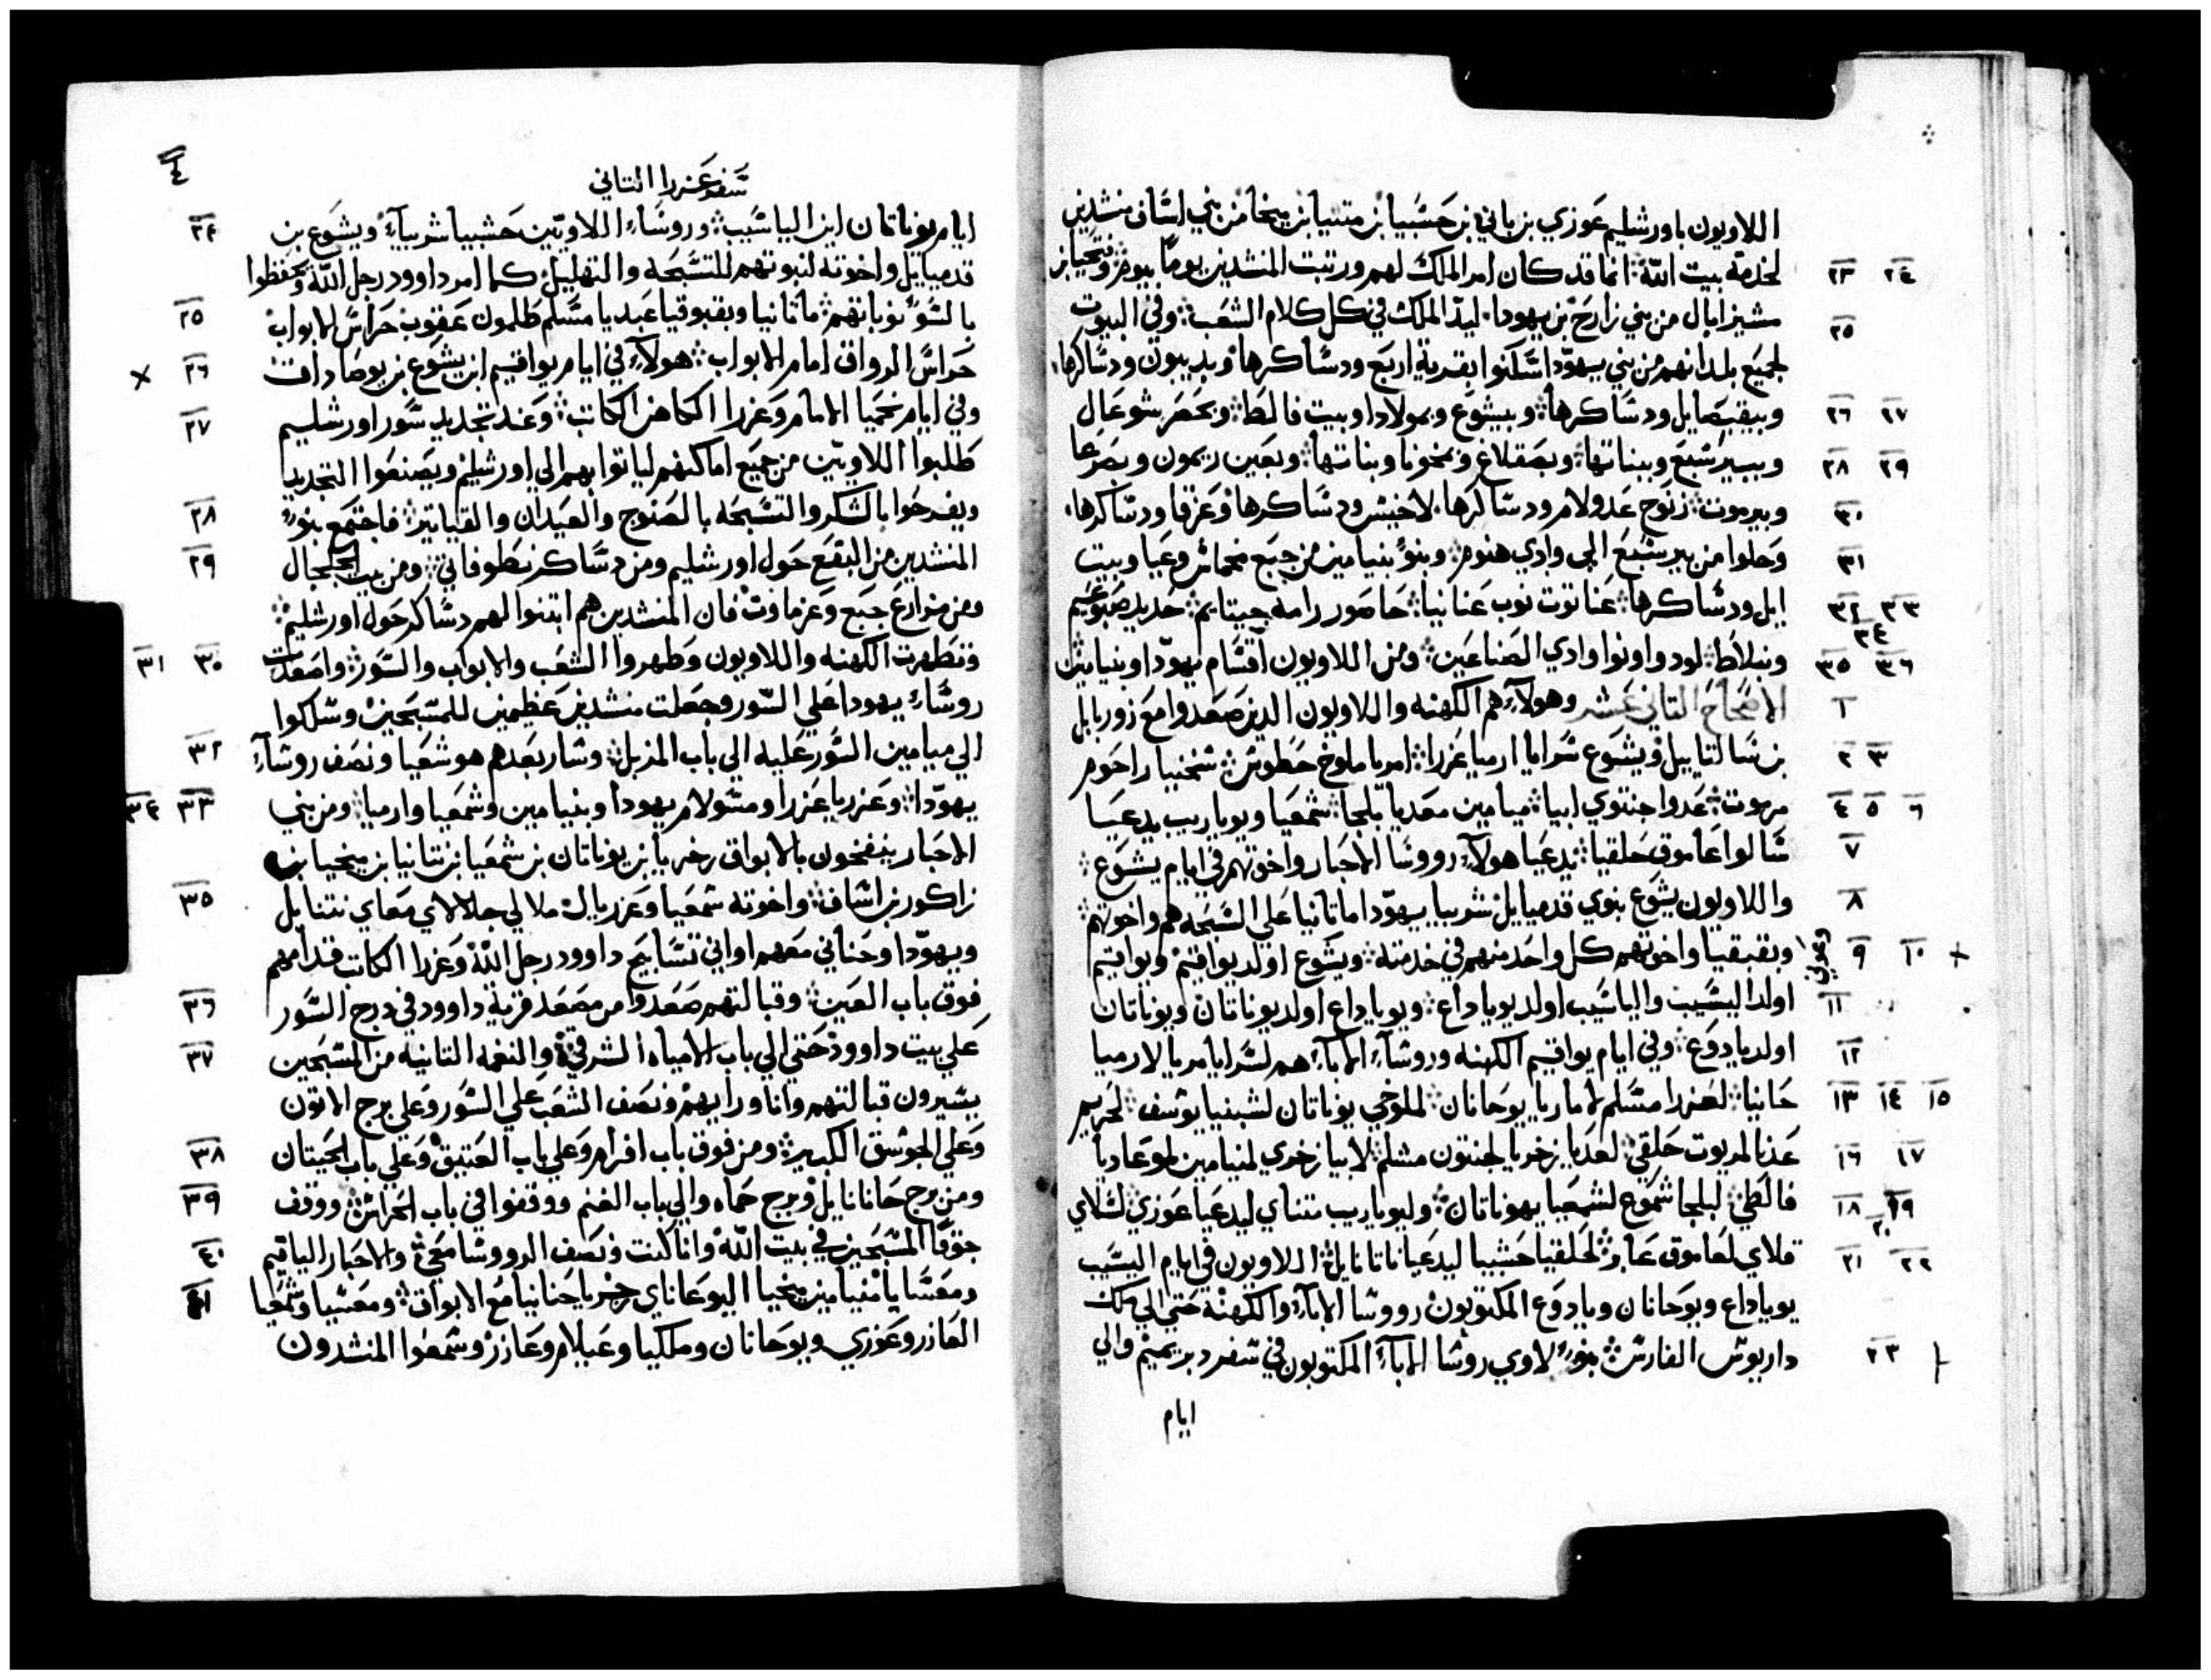 اللاويون باورشليم عوزي بن باني بن حشبيا بن متنيا بن ميخا من بني اساف منشدين
لخدمة بيت الله انما قد كان امر الملك لهم ورتبت المنشدين يوما بيوم وفتحيا بن
٢٣ ٢٤
مشيزابال من بني زارح بن يهودا ليد الملك في كل كلام الشعب وفي البيوت
٢٥
لجميع بلدانهم من بني يهودا سكنوا بقرية اربع ودساكرها وبديبون ودساكرها
وبيقبصايل ودساكرها وبيشوع وبمولادا وبيت فالط وبحصر شوعال
٢٦ ٢٧
وببيرشبع وببناتها وبصقلاغ وبمخونا وبناتها وبعين ريمون وبصرعا
٢٨ ٢٩
وبيرموت زنوح عدولام ودساكرها لاخيش ودساكرها وعزقا ودساكرها
٣٠
وحلوا من بيرشبع الى وادي هنوم وبنو بنيامين من جبع مخماش وعيا وبيت
٣١
ايل ودساكرها عناتوت نوب عنانيا حاصور رامه جيتايم حديد صبوعيم
٣٢ ٣٣
٣٤
ونبلاط لود واونوا وادي الصناعين ومن اللاويون اقسام يهودا وبنيامين
٣٥ ٣٦
الاصحاح التاني عشر وهولاء هم الكهنه واللاويون الدين صعدوا مع زوربابل
١
بن سالتاييل ويشوع سرايا ارميا عزرا امريا ملوخ حطوش شخنيا راحوم
٢ ٣
مرموت عدوا جنتوي ابيا ميامين معديا بلجا شمعيا ويوياريب يدعيا
٤ ٥ ٦
سالوا عاموق حلقيا يدعيا هولاء رووسا الاحبار واخوتهم في ايام يشوع
٧
واللاويون يشوع بنوي قدميايل شربيا يهودا ماتانيا علي التسبحه هم واخوتهم
٨
وبقبقيا واخوتهم كل واحد منهم في خدمته ويشوع اولد يواقيم ويواقيم
٩ ١٠
اولد اليشيب والياشيب اولد يوياداع ويوياداع اولد يوناتان ويوناتان
١١
اولد يادوع وفي ايام يواقيم الكهنه وروشاء الاباء هم لسرايا مريا لارميا
١٢
حانيا لعزرا مشلم لاماريا يوحانان لملوخي يوناتان لشبنيا يوسف لحريم
١٣ ١٤ ١٥
عدنا لمريوت حلقي لعديا زخريا لجنتون مشلم لابيا زخري لمنيامين لموعاديا
١٦ ١٧
فالطي لبلجا شموع لشمعيا يهوناتان وليوياريب متناي ليدعيا عوزي لسلاي
١٨ ١٩
٢٠
قلاي لعاموق عابر لحلقيا حشبيا ليدعيا ناتانايل اللاويون في ايام اليشيب
٢١ ٢٢
يوياداع ويوحانان ويادوع المكتوبون رووسا الاباء والكهنه حتي الي ملك
داريوش الفارسي بنو لاوي روسا الاباء المكتوبون في سفر دبريميم والي
٢٣
ايام
سفر عزرا التاني
٤
ايام يوناتان ابن الياشيب وروساء اللاويين حشبيا شربياء ويشوع بن
٢٤
قدميايل واخوته لنبوتهم للتسبحه والتهليل كما امر داوود رجل الله وتحفظوا
بالسوء نوباتهم ماتانيا وبقبوقيا عبديا مسلم طلمون عقوب حراس الابواب
٢٥
حراس الرواق امام الابواب هولاء في ايام يواقيم ابن يشوع بن يوصاداق
٢٦
وفي ايام نحميا الامام وعزرا الكاهن الكاتب وعند تجديد سور اورشليم
٢٧
طلبوا اللاويين من جميع اماكنهم لياتوا بهم الي اورشليم ويصنعوا التجديد
ويفرحوا بالشكر والتسبحه بالصنوج والعيدان والقياتير فاجتمع بنو
٢٨
المنشدين من البقع حول اورشليم ومن دساكر نطوفاتي ومن بيت الجلجال
٢٩
ومن مزارع جبع وعزماوت فان المنشدين هم ابتنوا لهم دساكر حول اورشليم
وتطهرت الكهنه واللاويون وطهروا الشعب والابواب والسور واصعدت
٣٠ ٣١
روساء يهودا علي السور وجعلت منشدين عظمين للمسبحين وسلكوا
الي ميامين السور عليه الي باب المزبل وسار بعدهم هوشعيا ونصف روساء
٣٢
يهودا وعزريا عزرا ومشولام يهودا وبنيامين وشمعيا وارميا ومن بني
٣٣ ٣٤
الاحبار ينفخون بالابواق زخريا بن يوناتان بن شمعيا بن نتانيا بن ميخيا بن
زاكور بن اساف واخوته شمعيا وعزريال ملالي جلالاي معاي نتنايل
٣٥
ويهودا وحناني معهم اواني تسابيح داوود رجل الله وعزرا الكاتب قدامهم
فوق باب العين وقبالتهم صعدوا من مصعد قرية داوود في درج السور
٣٦
علي بيت داوود حتي الي باب الامياه الشرقي والنغمه التانيه من المسبحين
٣٧
يسيرون قبالتهم وانا وراءهم ونصف الشعب علي السور وعلي برج الاتون
وعلي الجوسق الكبير ومن فوق باب افرام وعلي باب العتيق وعلي باب الحيتان
٣٨
ومن برج حانانايل وبرج حماه والي باب الغنم ووقفوا في باب الحراس ووقف
٣٩
جوقا المسبحين في بيت الله وانا كنت ونصف الرووسا معي والاحبار الياقيم
٤٠
ومعسايا منيامين ميخيا اليوعاناي زخريا حنانيا مع الابواق ومعسيا وشمعيا
٤١
العازر وعوزي ويوحانان وملكيا وعيلام وعازر وشمعوا المنشدون